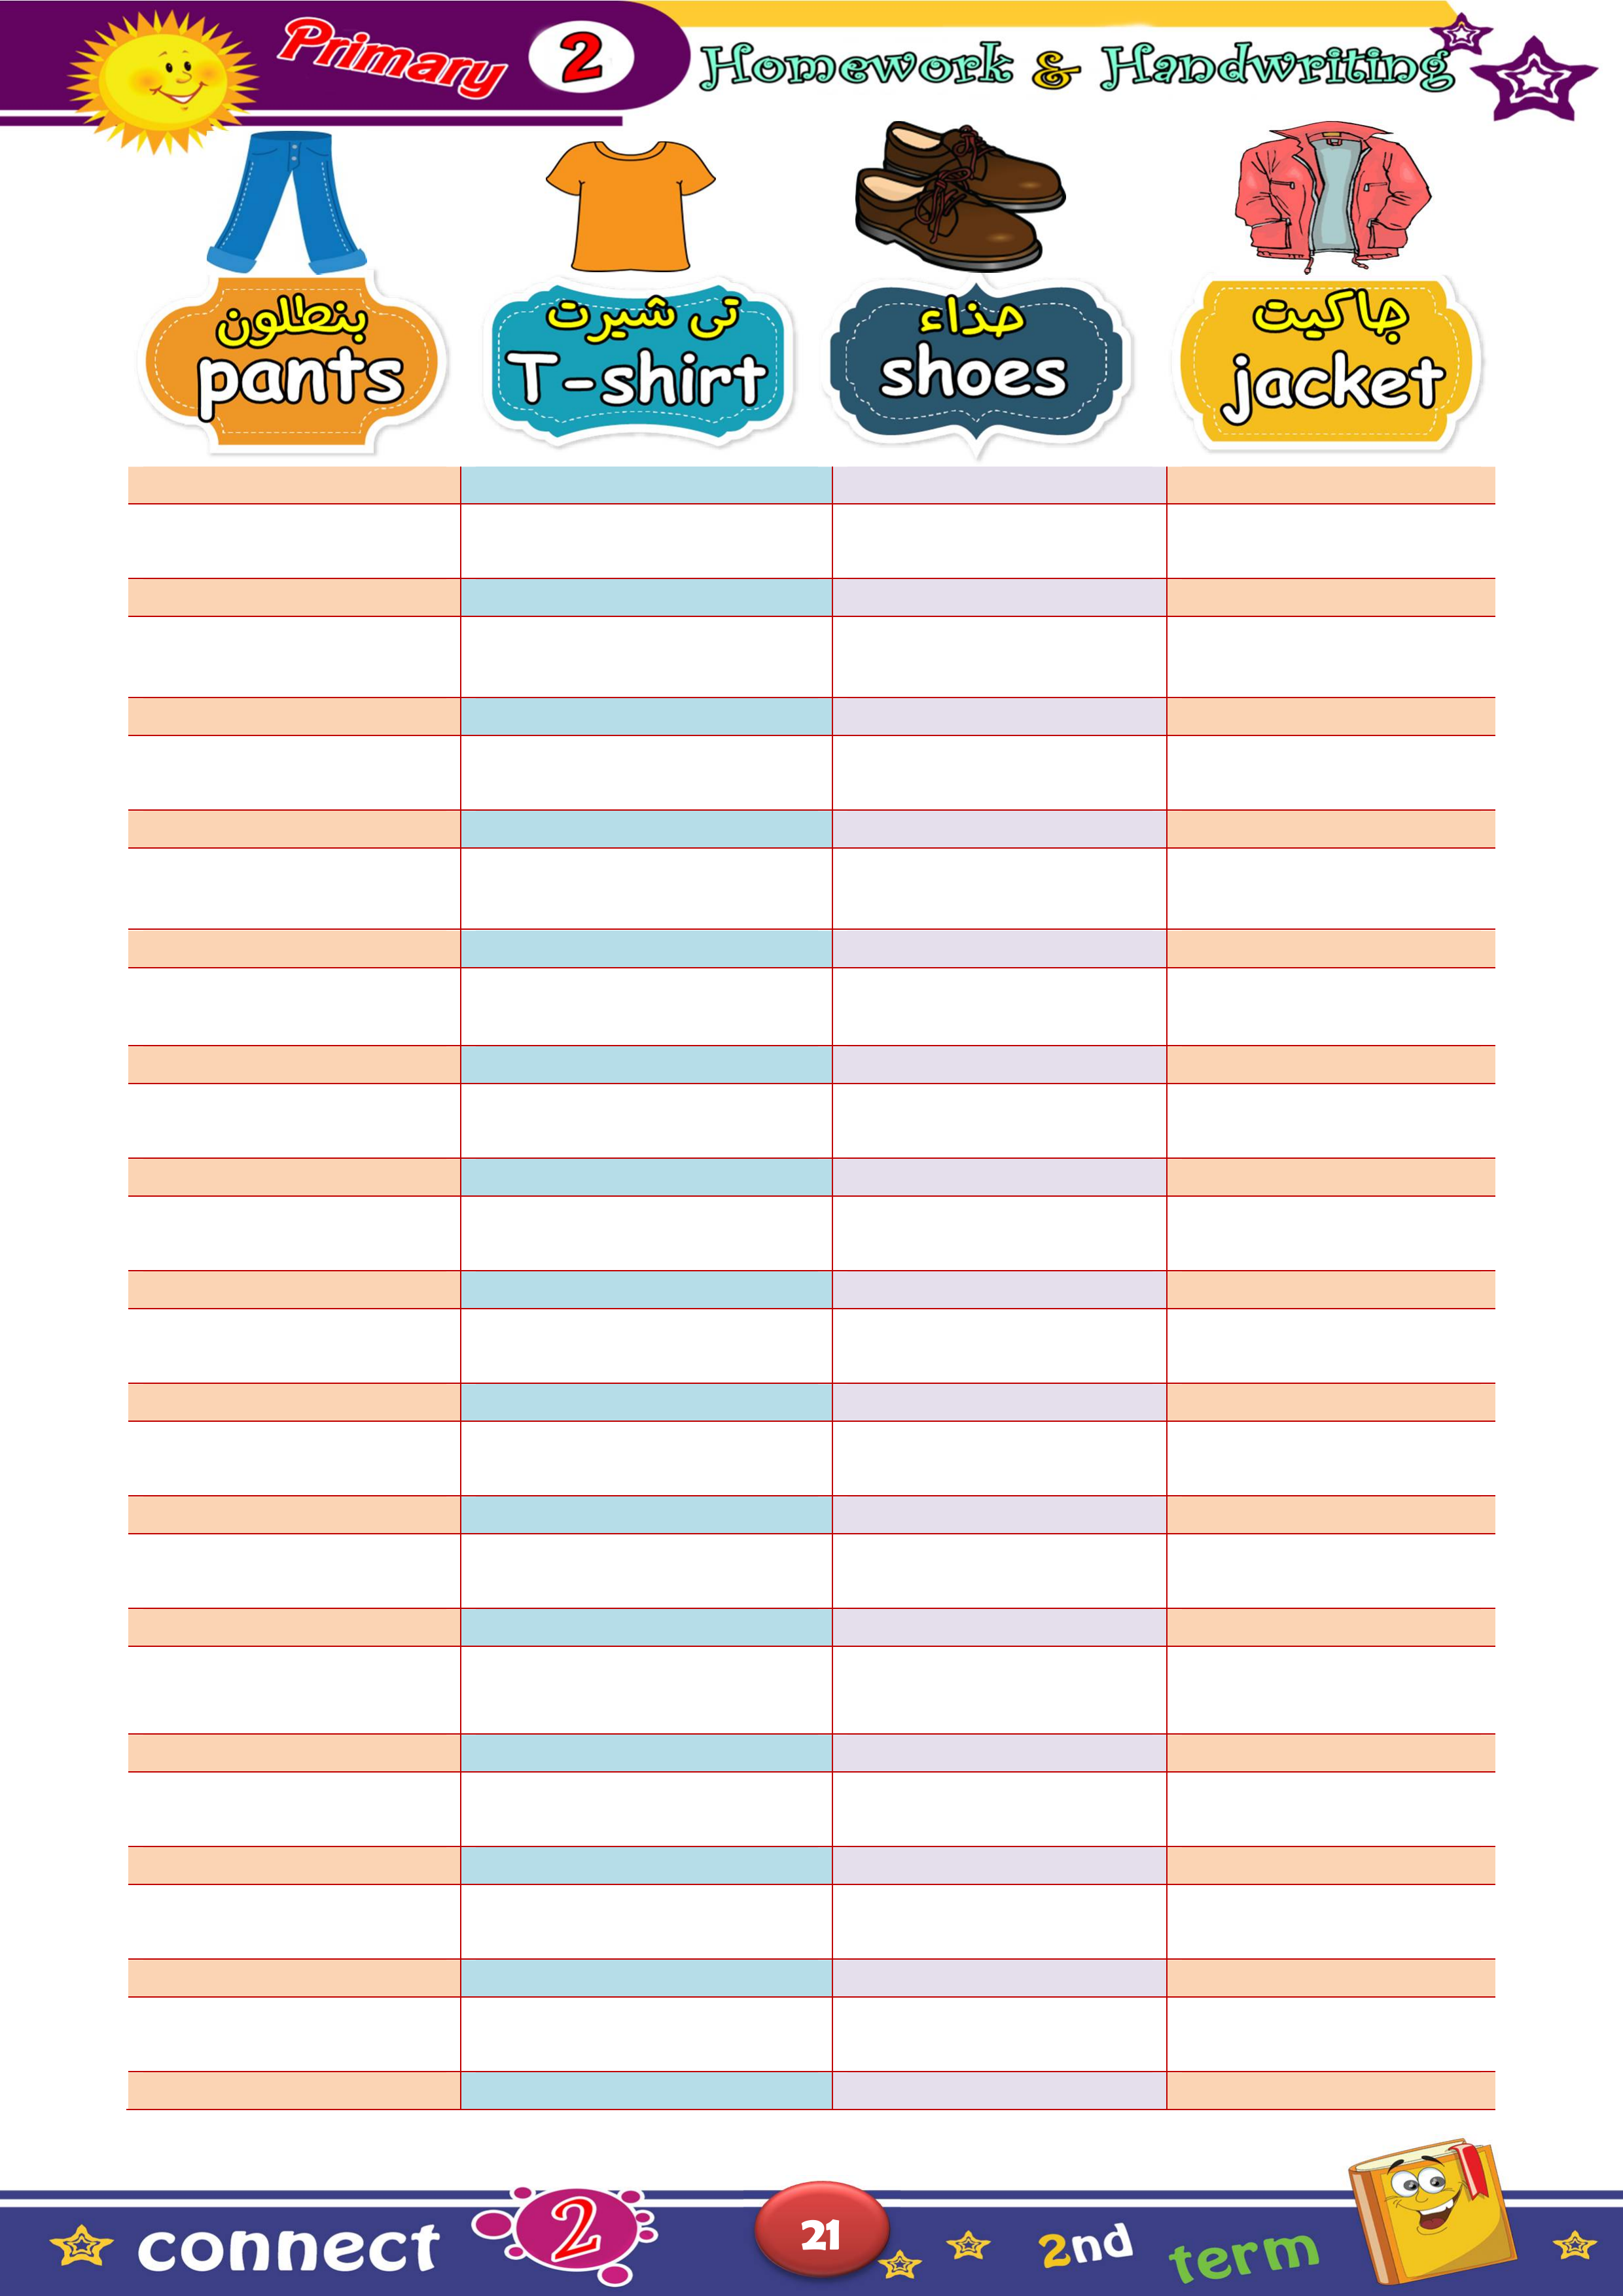 Primary 2 Homework & Handwriting
بنطلون
pants
تى شيرت
T-shirt
حذاء
shoes
جاكيت
jacket
connect 2
21
2nd term